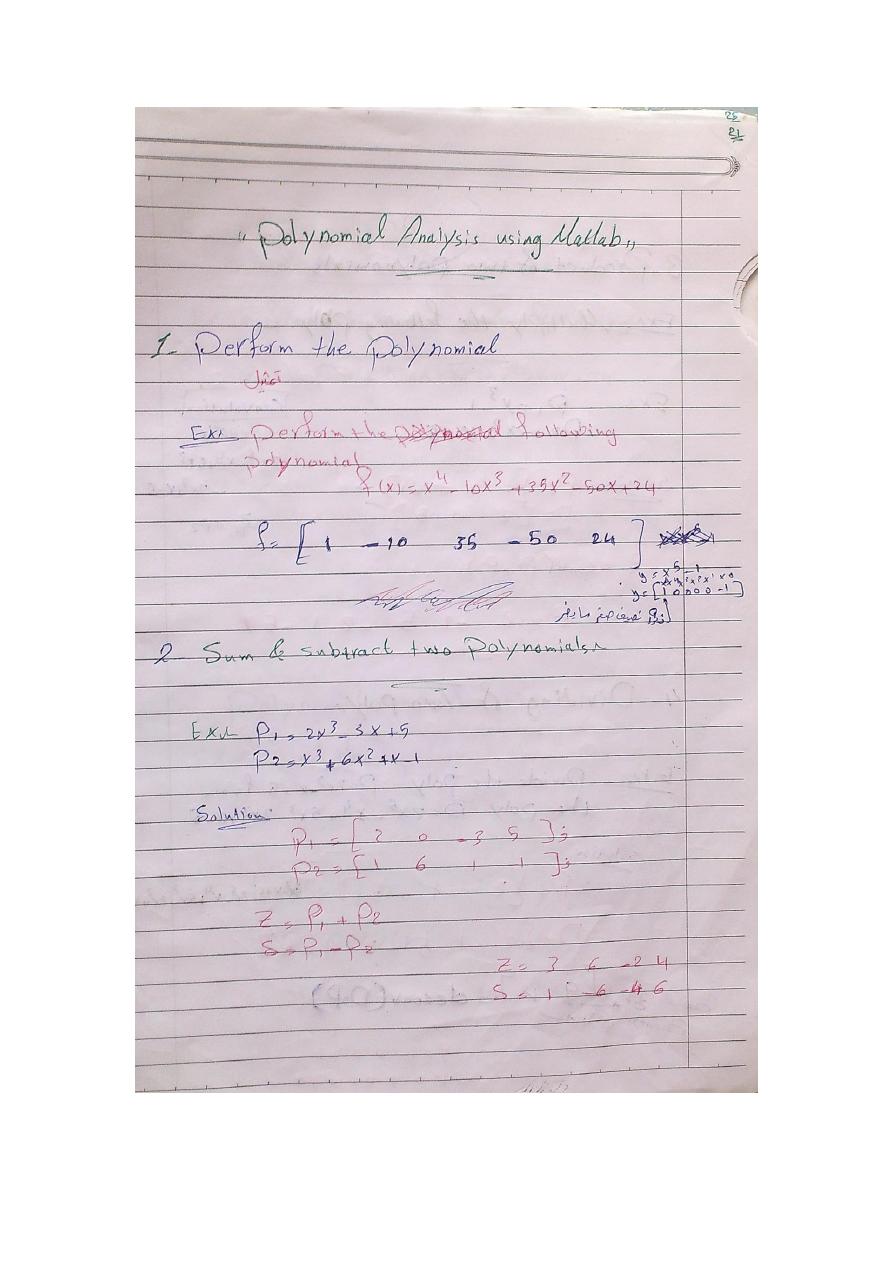 25
21
" Polynomial Analysis using Matlab "
1- Perform the Polynomial
تمثيل
Ex: Perform the following
polynomial
f(x) = x⁴ - 10x³ + 35x² - 50x + 24
f = [ 1 -10 35 -50 24 ]
y = x⁵ - 1
x⁵ x⁴ x³ x² x¹ x⁰
y = [ 1 0 0 0 0 -1 ]
2- Sum & subtract two Polynomials.
Ex: P1 = 2x³ - 3x + 5
P2 = x³ + 6x² + x - 1
Solution
P1 = [ 2 0 -3 5 ];
P2 = [ 1 6 1 -1 ];
Z = P1 + P2
S = P1 - P2
Z = 3 6 -2 4
S = 1 -6 -4 6